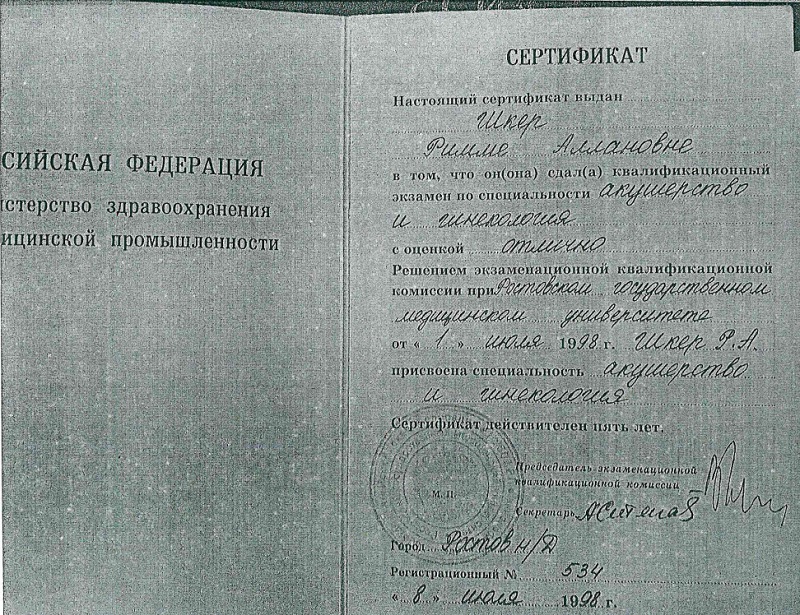 СИЙСКАЯ ФЕДЕРАЦИЯ
истерство здравоохранения
ицинской промышленности
СЕРТИФИКАТ
Настоящий сертификат выдан
Шкер
Римме Аллановне
в том, что он(она) сдал(а) квалификационный
экзамен по специальности акушерство
и гинекология
с оценкой отлично
Решением экзаменационной квалификационной
комиссии при Ростовском государственном
медицинском университете
от « 1 » июля 1998 г. Шкер Р.А.
присвоена специальность акушерство
и гинекология
Сертификат действителен пять лет.
Председатель экзаменационной
квалификационной комиссии
М. П.
Секретарь
Город Ростов н/Д
Регистрационный № 534
« 8 » июля 1998 г.